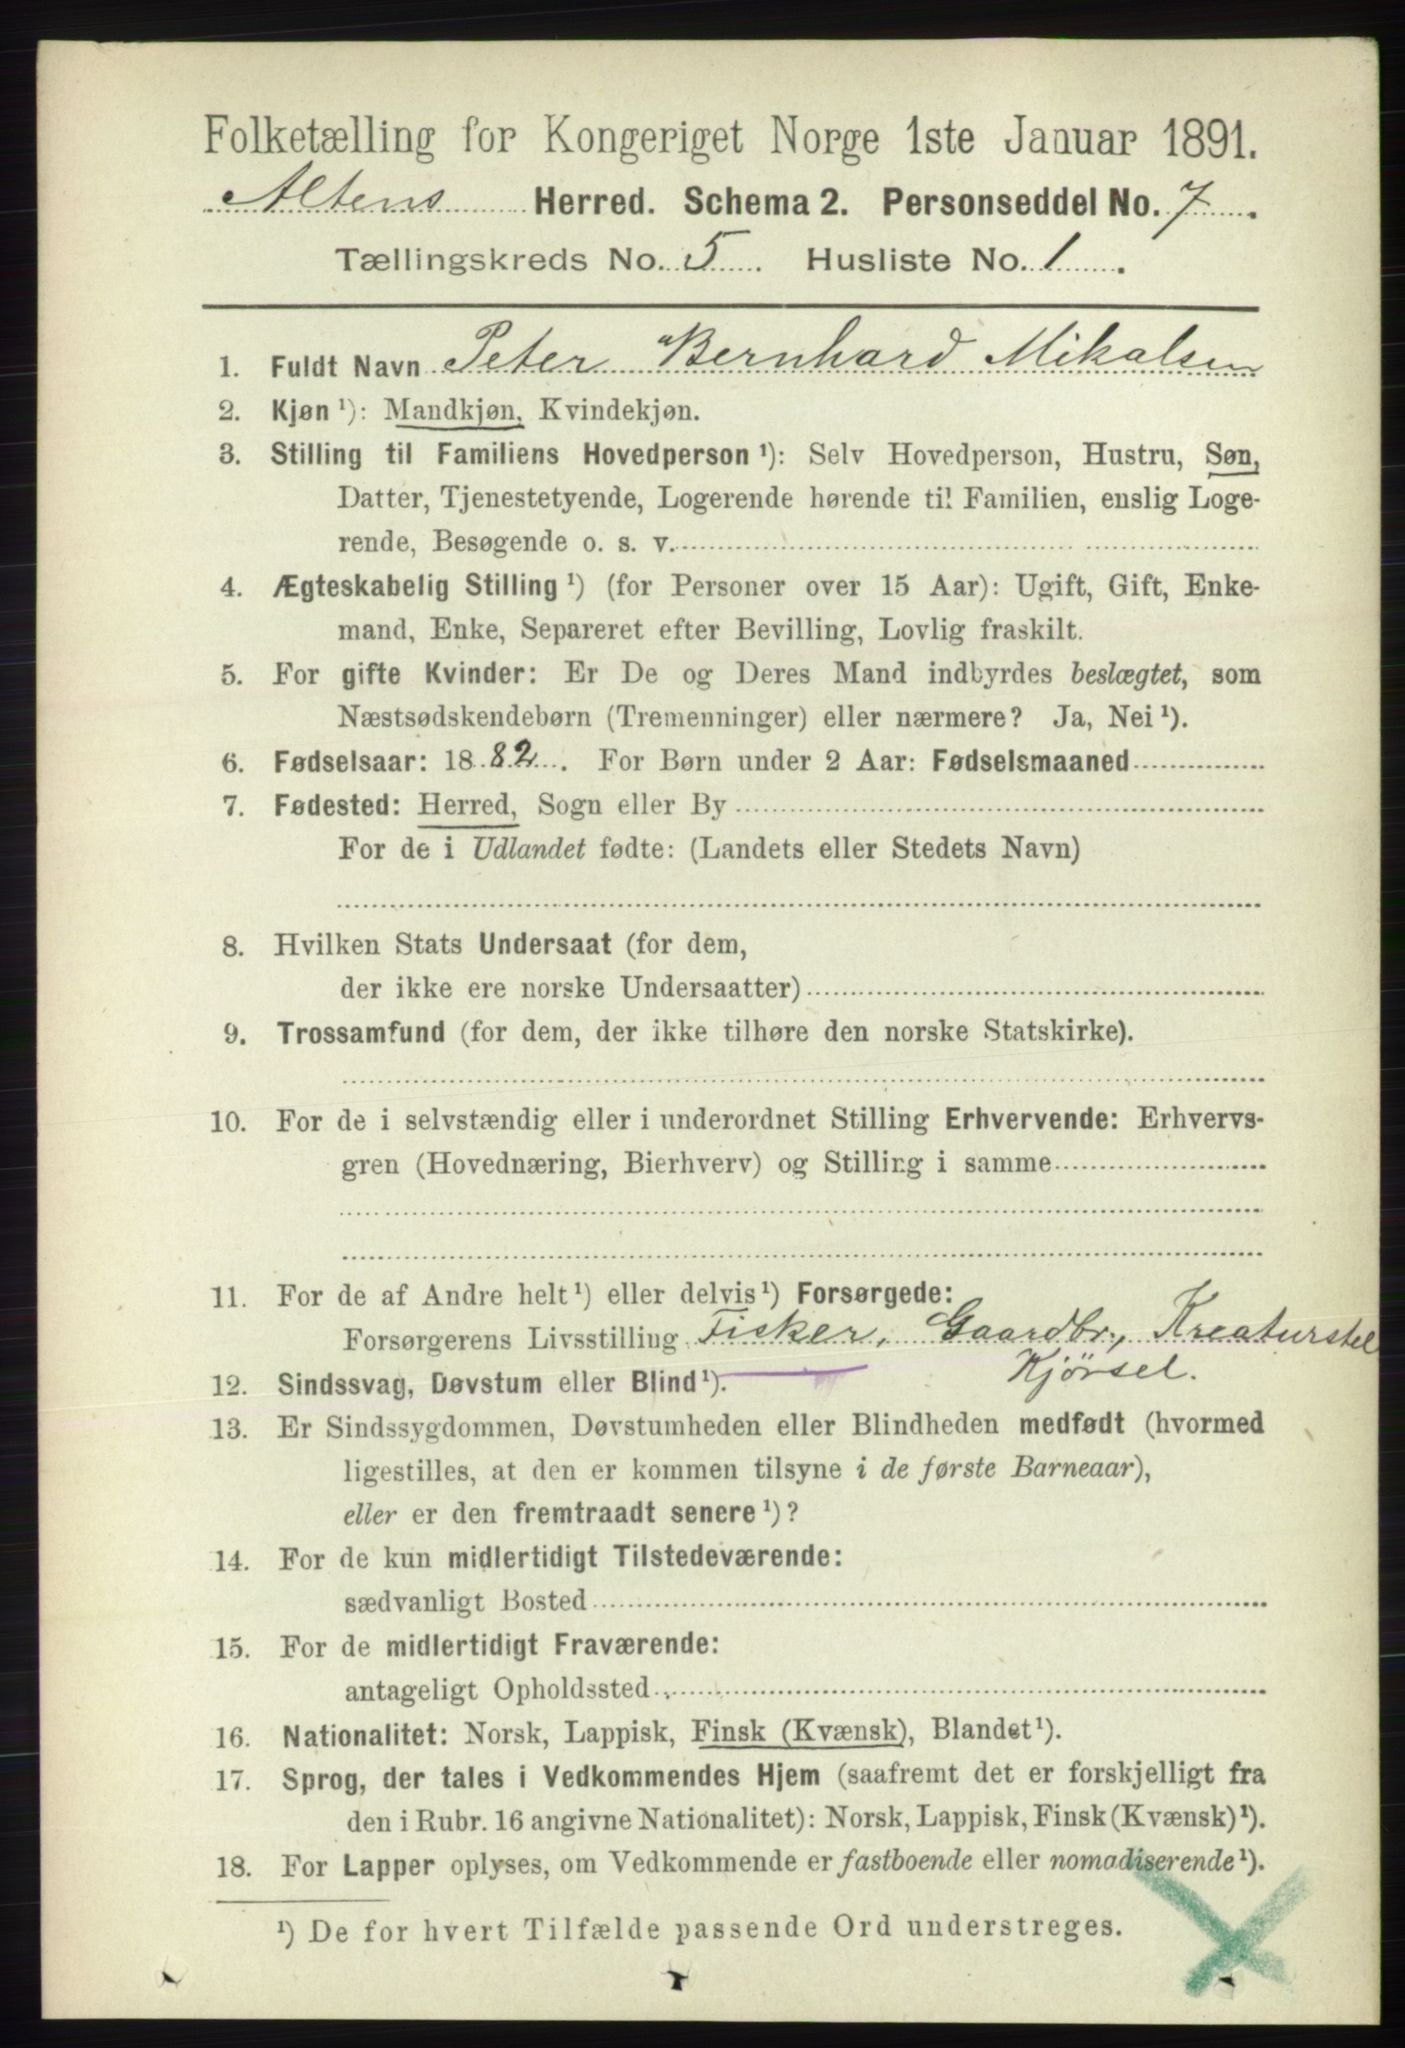 Folketælling for Kongeriget Norge 1ste Januar 1891.
Altens Herred. Schema 2. Personseddel No. 7.
Tællingskreds No. 5. Husliste No. 1.
1. Fuldt Navn Peter Bernhard Mikalsen
2. Kjøn ¹): Mandkjøn, Kvindekjøn.
3. Stilling til Familiens Hovedperson ¹): Selv Hovedperson, Hustru, Søn,
Datter, Tjenestetyende, Logerende hørende til Familien, enslig Loge-
rende, Besøgende o. s. v.
4. Ægteskabelig Stilling ¹) (for Personer over 15 Aar): Ugift, Gift, Enke-
mand, Enke, Separeret efter Bevilling, Lovlig fraskilt.
5. For gifte Kvinder: Er De og Deres Mand indbyrdes beslægtet, som
Næstsødskendebørn (Tremenninger) eller nærmere? Ja, Nei ¹).
6. Fødselsaar: 1882. For Børn under 2 Aar: Fødselsmaaned
7. Fødested: Herred, Sogn eller By
For de i Udlandet fødte: (Landets eller Stedets Navn)
8. Hvilken Stats Undersaat (for dem,
der ikke ere norske Undersaatter)
9. Trossamfund (for dem, der ikke tilhøre den norske Statskirke).
10. For de i selvstændig eller i underordnet Stilling Erhvervende: Erhvervs-
gren (Hovednæring, Bierhverv) og Stilling i samme
11. For de af Andre helt ¹) eller delvis ¹) Forsørgede:
Forsørgerens Livsstilling Fisker, Gaardbr., Kreaturstel
Kjörsel.
12. Sindssvag, Døvstum eller Blind ¹).
13. Er Sindssygdommen, Døvstumheden eller Blindheden medfødt (hvormed
ligestilles, at den er kommen tilsyne i de første Barneaar),
eller er den fremtraadt senere ¹)?
14. For de kun midlertidigt Tilstedeværende:
sædvanligt Bosted
15. For de midlertidigt Fraværende:
antageligt Opholdssted
16. Nationalitet: Norsk, Lappisk, Finsk (Kvænsk), Blandet ¹).
17. Sprog, der tales i Vedkommendes Hjem (saafremt det er forskjelligt fra
den i Rubr. 16 angivne Nationalitet): Norsk, Lappisk, Finsk (Kvænsk) ¹).
18. For Lapper oplyses, om Vedkommende er fastboende eller nomadiserende ¹).
¹) De for hvert Tilfælde passende Ord understreges.